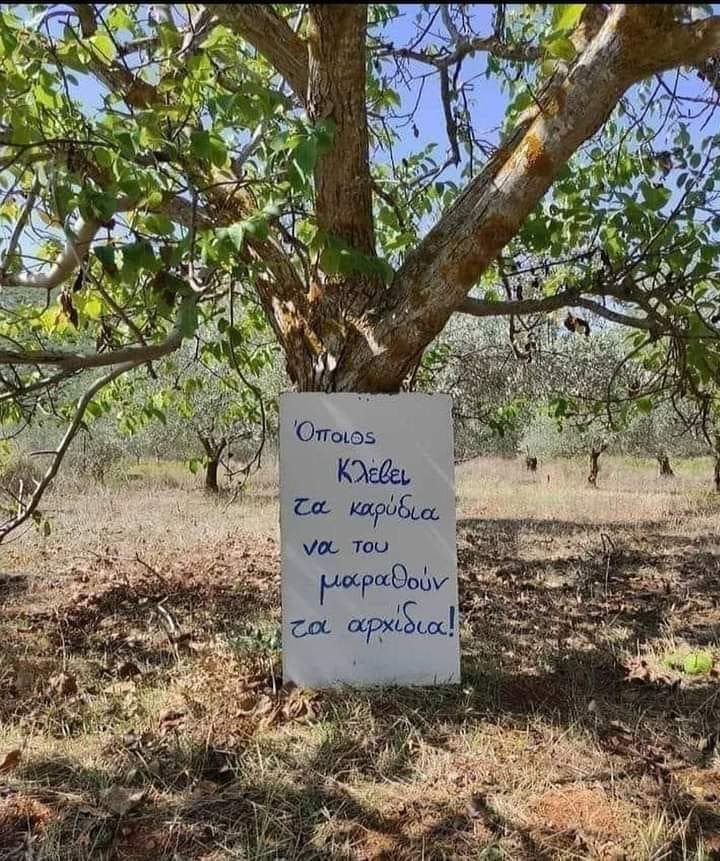 Όποιος
Κλέβει
τα καρύδια
να του
μαραθούν
τα αρχίδια!